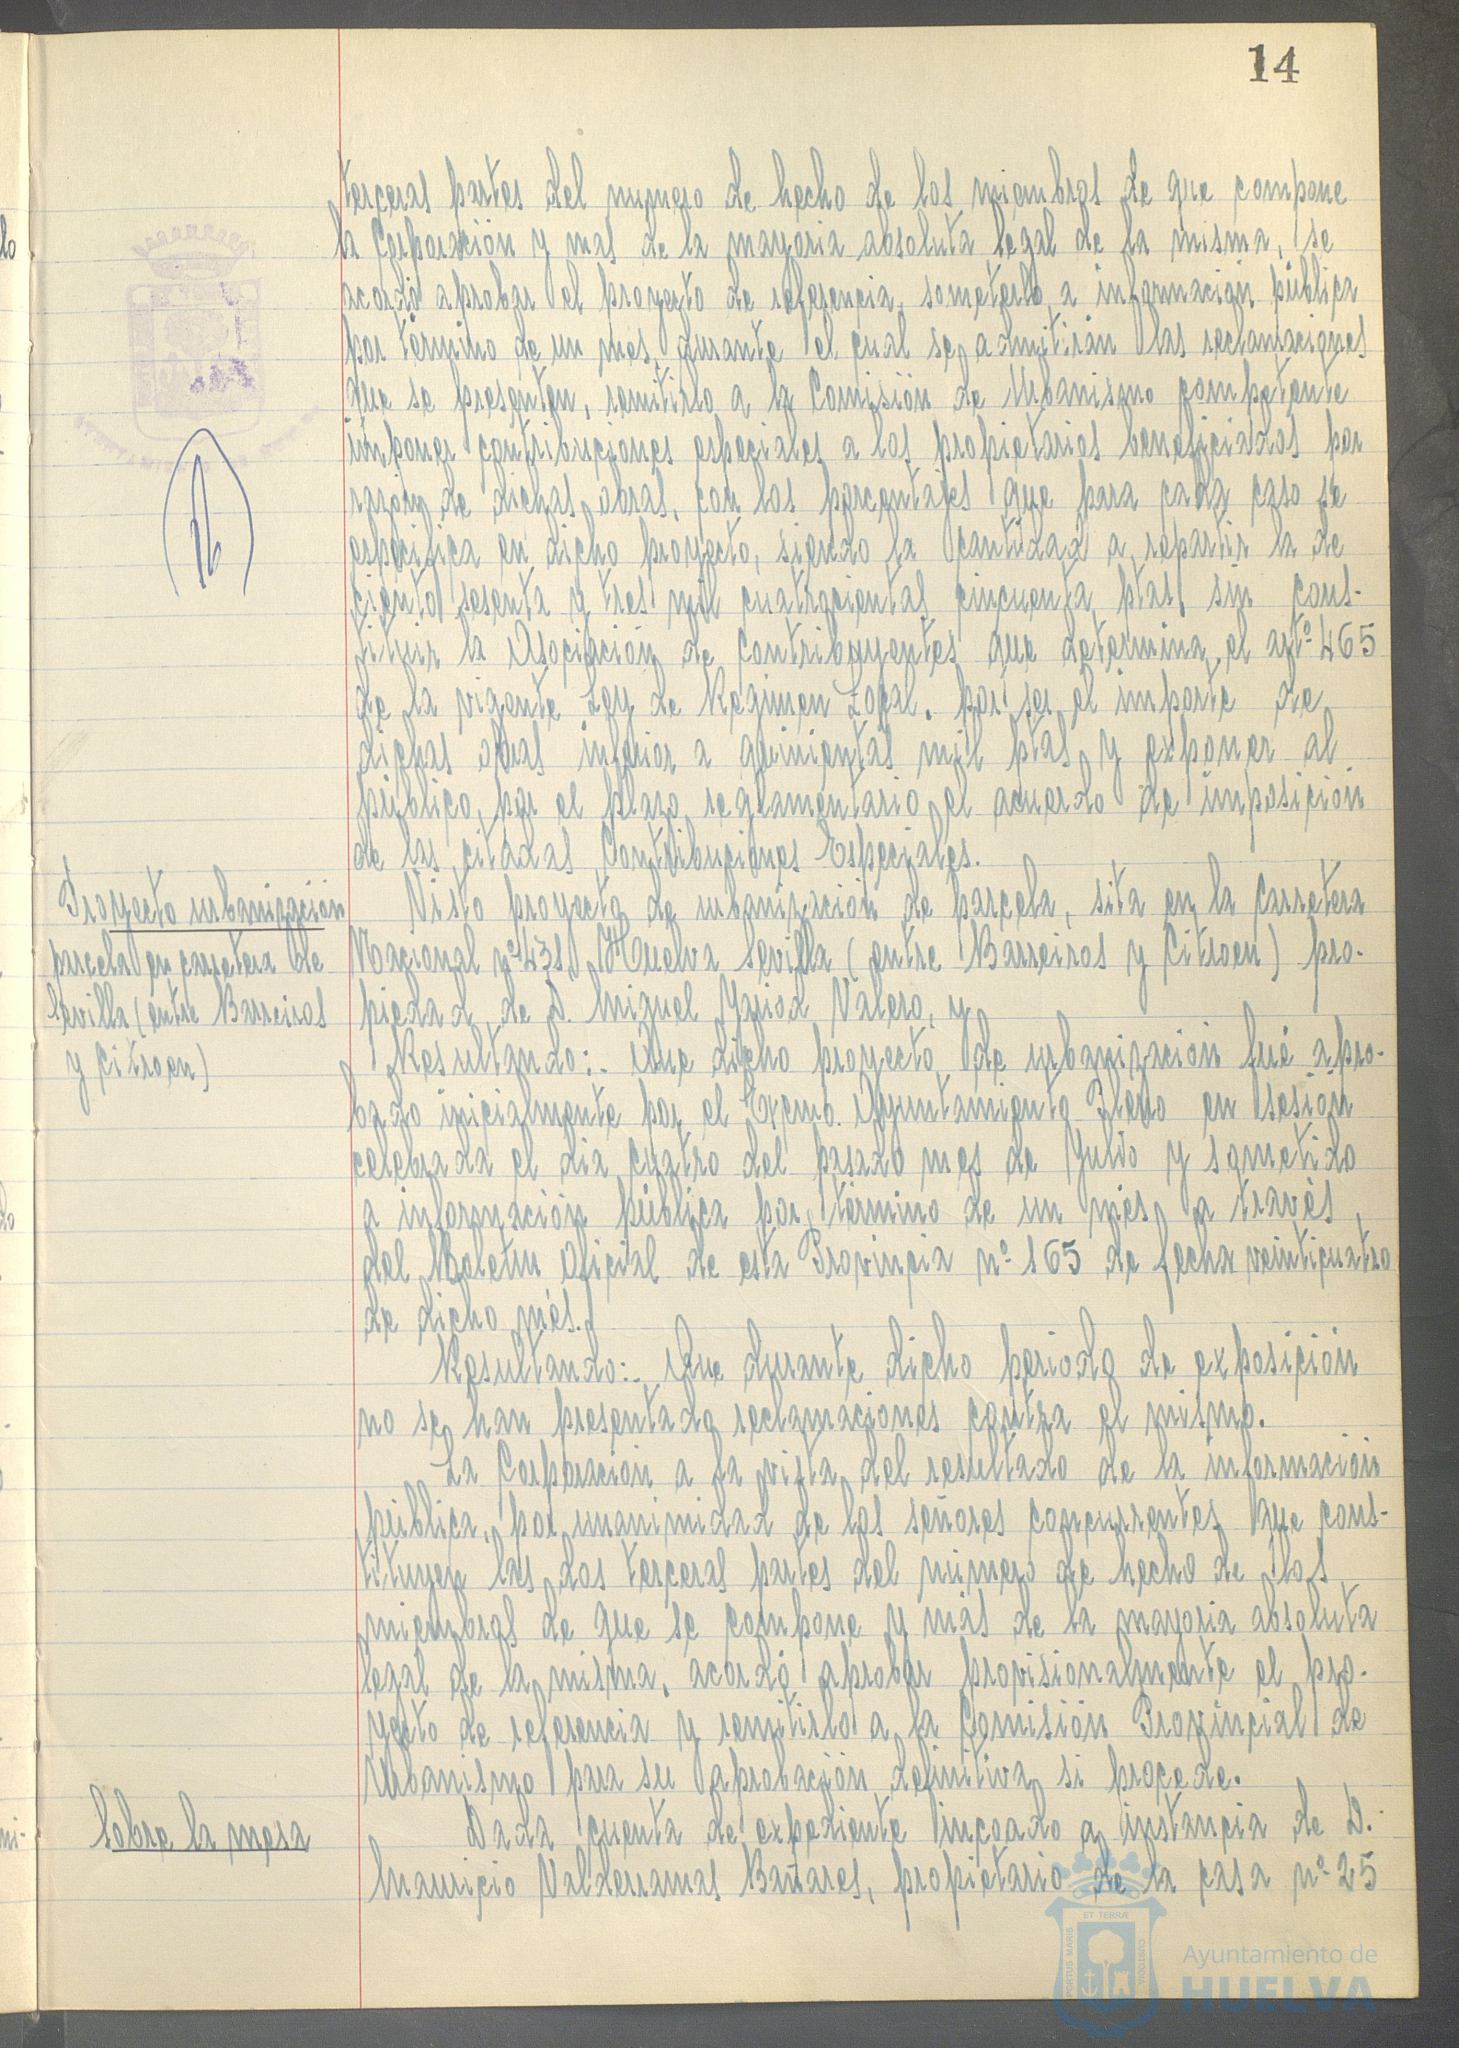 14
terceras partes del numero de hecho de los miembros de que compone
la Corporación y mas de la mayoria absoluta legal de la misma, se
acordó aprobar el proyecto de referencia, someterlo a información pública
por término de un mes, durante el cual se admitirán las reclamaciones
que se presenten, remitirlo a la Comisión de Urbanismo competente
imponer contribuciones especiales a los propietarios beneficiados por
razón de dichas obras, con los porcentajes que para cada caso se
especifica en dicho proyecto, siendo la cantidad a repartir la de
ciento sesenta y tres mil cuatrocientas cincuenta ptas, sin cons-
tituir la Asociación de Contribuyentes que determina el artº 465
de la vigente Ley de Regimen Local. por ser el importe de
dichas obras inferior a quinientas mil ptas y exponer al
público, por el plazo reglamentario el acuerdo de imposición
de las citadas Contribuciones Especiales.
Proyecto urbanización
parcela en carretera de
Sevilla (entre Barreiros
y Citroen)
Visto proyecto de urbanización de parcela, sita en la Carretera
Nacional nº 431, Huelva Sevilla (entre Barreiros y Citroen) pro-
piedad de D. Miguel Valero, y
Resultando:- Que dicho proyecto de urbanización fué apro-
bado inicialmente por el Excmo. Ayuntamiento Pleno en sesión
celebrada el dia cuatro del pasado mes de Julio y sometido
a información pública por término de un més a través
del Boletin Oficial de esta Provincia nº 165 de fecha veinticuatro
de dicho més.
Resultando:- Que durante dicho periodo de exposición
no se han presentado reclamaciones contra el mismo.
La Corporación a la vista del resultado de la información
pública, por unanimidad de los señores concurrentes que cons-
tituyen las dos terceras partes del número de hecho de los
miembros de que se compone y más de la mayoria absoluta
legal de la misma, acordó aprobar provisionalmente el pro-
yecto de referencia y remitirlo a la Comisión Provincial de
Urbanismo para su aprobación definitiva si procede.
Sobre la mesa
Dada cuenta de expediente incoado a instancia de D.
Mauricio Valderramas Bañares, propietario de la casa nº 25
PORTUS MARIS
ET TERRÆ
CUSTODIA
Ayuntamiento de
HUELVA